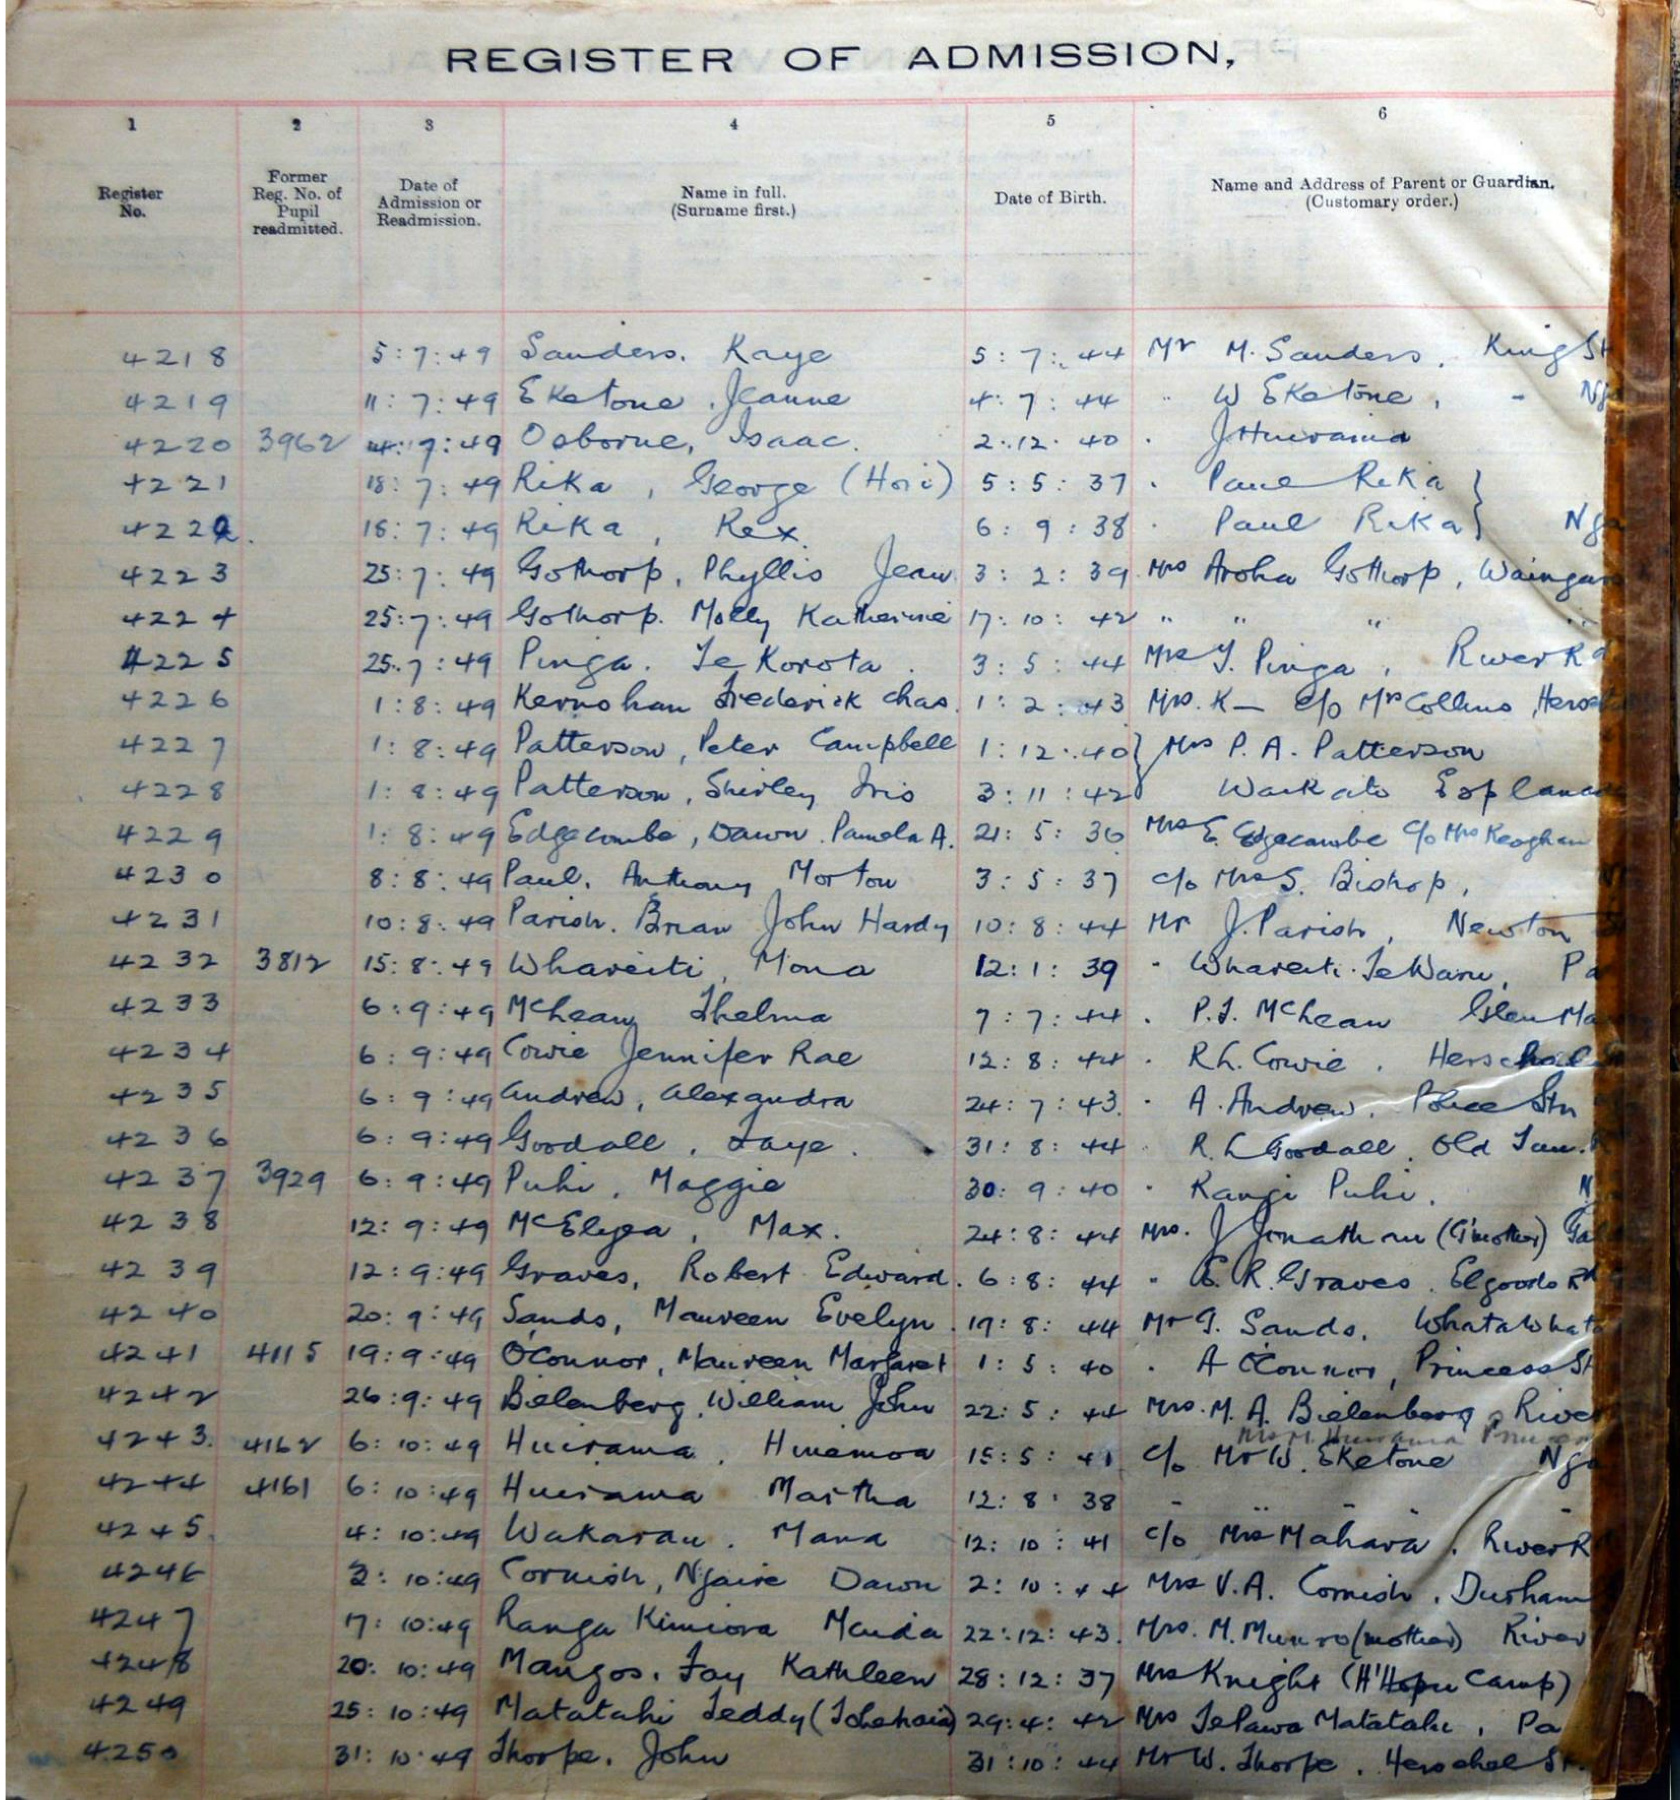 REGISTER OF ADMISSION,
1 2 3 4 5 6
Register No. Former Reg. No. of Pupil readmitted. Date of Admission or Readmission. Name in full. (Surname first.) Date of Birth. Name and Address of Parent or Guardian. (Customary order.)
4218 5:7:49 Sanders. Kaye 5:7:44 Mr M. Sanders. King St
4219 11:7:49 Eketone, Jeanne 4:7:44 " W Eketone, - Nga
4220 3962 4:7:49 Osborne, Isaac. 2:12:40 " J Huirama
4221 18:7:49 Rika, George (Hori) 5:5:37 " Paul Rika }
4222. 18:7:49 Rika, Rex. 6:9:38 " Paul Rika } Nga
4223 25:7:49 Gothorp, Phyllis Jean 3:2:39 Mrs Aroha Gothorp, Waingaro
4224 25:7:49 Gothorp. Molly Katherine 17:10:42 " " " "
4225 25:7:49 Pinga. Te Korota. 3:5:44 Mrs T. Pinga, River Rd
4226 1:8:49 Kernohan Frederick Chas. 1:2:43 Mrs. K— c/o Mrs Collins, Hersc
4227 1:8:49 Patterson, Peter Campbell 1:12:40 } Mrs P. A. Patterson
4228 1:8:49 Patterson, Shirley Iris 3:11:42 } Waikato Esplanade
4229 1:8:49 Edgecombe, Dawn Pamela A. 21:5:36 Mrs E. Edgecombe c/o Mrs Keoghan
4230 8:8:49 Paul. Anthony Morton 3:5:37 c/o Mrs S. Bishop,
4231 10:8:49 Parish. Brian John Hardy 10:8:44 Mr J. Parish, Newton St
4232 3812 15:8:49 Whareiti, Mona 12:1:39 " Whareiti TeWaru, Pa
4233 6:9:49 McLean, Thelma 7:7:44 " P.J. McLean Glen Ma
4234 6:9:49 Cowie Jennifer Rae 12:8:44 " R.L. Cowie. Herschel St
4235 6:9:49 Andrew, Alexandra 24:7:43. " A. Andrew. Police Stn
4236 6:9:49 Goodall, Faye. 31:8:44 " R. L Goodall. Old Tau. R
4237 3929 6:9:49 Puhi, Maggie 30:9:40 " Rangi Puhi. N
4238 12:9:49 McElyea, Max. 24:8:44 Mrs. J Jonathan (G'mother) Ga
4239 12:9:49 Graves, Robert Edward. 6:8:44 " E. R. Graves. Elgoods Rd
4240 20:9:49 Sands, Maureen Evelyn. 19:8:44 Mr G. Sands. Whatawhata
4241 4115 19:9:49 O'Connor, Maureen Margaret 1:5:40 " A O'Connor, Princess St
4242 26:9:49 Bielenberg, William John 22:5:44 Mrs. M. A. Bielenberg, River
Mrs M. Huirama
4243. 4162 6:10:49 Huirama. Hinemoa 15:5:41 c/o Mr W. Eketone Nga
4244 4161 6:10:49 Huirama Martha 12:8:38 " " " "
4245. 4:10:49 Wakarau. Mana 12:10:41 c/o Mrs Mahara. River R
4246 3:10:49 Cornish, Ngaire Dawn 2:10:44 Mrs V.A. Cornish. Durham
4247 17:10:49 Ranga Kimiora Mauda 22:12:43. Mrs. M. Munro (mother) River
4248 20:10:49 Mangos. Fay Kathleen 28:12:37 Mrs Knight (H'Hopu Camp)
4249 25:10:49 Matatahi Teddy 29:4:42 Mrs TePawa Matatahi, Pa
4250 31:10:49 Thorpe. John 31:10:44 Mr W. Thorpe. Herschel St.